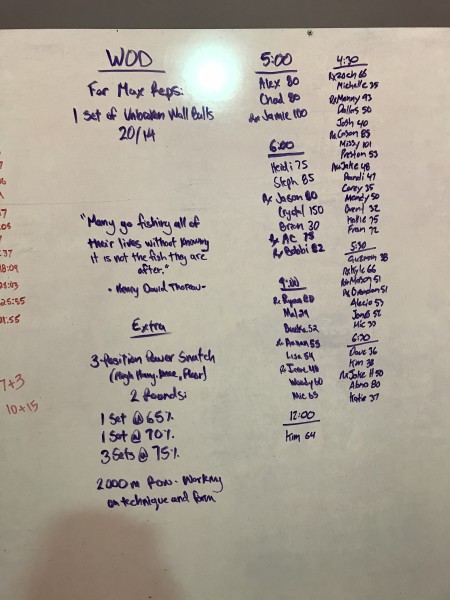 WOD
For Max Reps:
1 set of Unbroken Wall Balls
20/14
"Many go fishing all of
their lives without knowing
it is not the fish they are
after."
- Henry David Thoreau-
Extra
3-Position Power Snatch
(High Hang, Knee, Floor)
2 Rounds:
1 Set @ 65%
1 Set @ 70%
3 Sets @ 75%
2000m Row - Working
on technique and form
5:00
Alex 80
Chad 80
Rx Jamie 100
6:00
Heidi 75
Steph 85
Rx Jason 80
Crystal 150
Brian 30
Rx AC 75
Rx Bobbi 82
9:00
Rx Ryan 80
Mal 29
52
55
Lisa 54
Rx 40
Woody 60
Mic 65
12:00
Kim 64
4:30
Rx Zach 66
Michelle 35
Rx Manny 93
Dallas 50
Josh 40
Rx Carson 85
Missy 101
Preston 53
Rx Jake 48
Randi 47
Corey 35
Mandy 50
Darryl 32
Katie 75
Fran 72
5:30
38
Rx Kyle 66
Rx Mason 51
Rx Brandon 51
Alecia 57
Jonas 56
Mic 33
6:30
Dave 36
Kim 38
Rx Jake H 50
Abno 80
Katie 37
:37
18:09
21:03
25:55
21:55
7+3
10+15